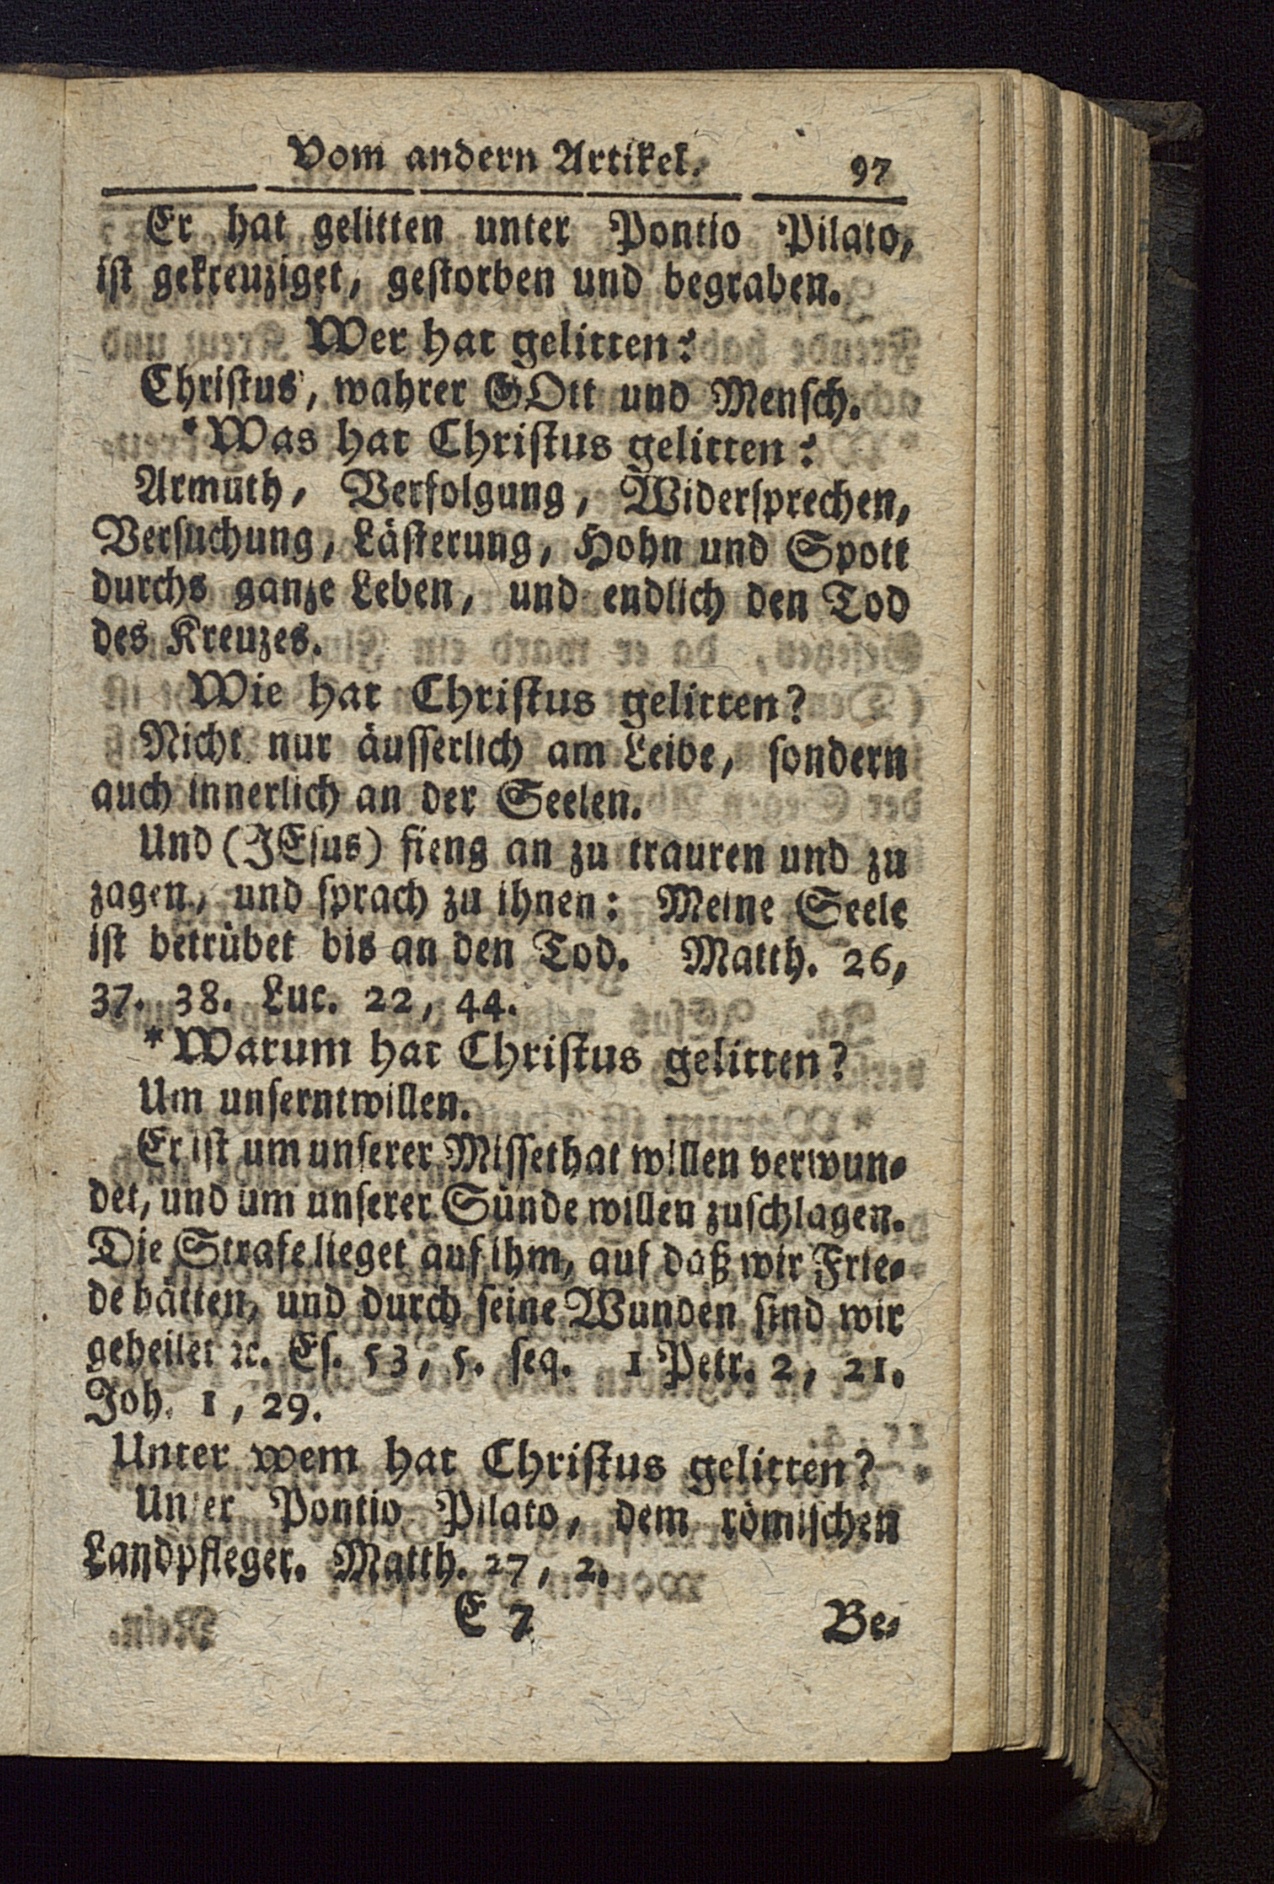 Vom andern Artikel. 97
Er hat gelitten unter Pontio Pilato,
ist gekreuziget, gestorben und begraben.
Wer hat gelitten?
Christus, wahrer GOtt und Mensch.
*Was hat Christus gelitten?
Armuth, Verfolgung, Widersprechen,
Versuchung, Lästerung, Hohn und Spott
durchs ganze Leben, und endlich den Tod
des Kreuzes.
Wie hat Christus gelitten?
Nicht nur äusserlich am Leibe, sondern
auch innerlich an der Seelen.
Und (JEsus) fieng an zu trauren und zu
zagen, und sprach zu ihnen: Meine Seele
ist betrübet bis an den Tod. Matth. 26,
37. 38. Luc. 22, 44.
*Warum hat Christus gelitten?
Um unserntwillen.
Er ist um unserer Missethat willen verwun-
det, und um unserer Sünde willen zuschlagen.
Die Strafe lieget auf ihm, auf daß wir Frie-
de hätten, und durch seine Wunden sind wir
geheilet ꝛc. Es. 53, 5. seq. 1 Petr. 2, 21.
Joh. 1, 29.
Unter wem hat Christus gelitten?
Unter Pontio Pilato, dem römischen
Landpfleger. Matth. 27, 2.
E 7 Be-